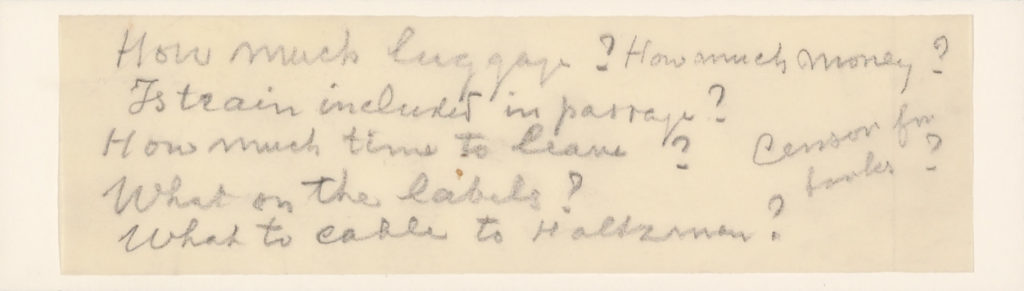 How much luggage? How much money?
Is train included in passage?
How much time to leave?
Censor for
books?
What on the labels?
What to cable to Holtzman?